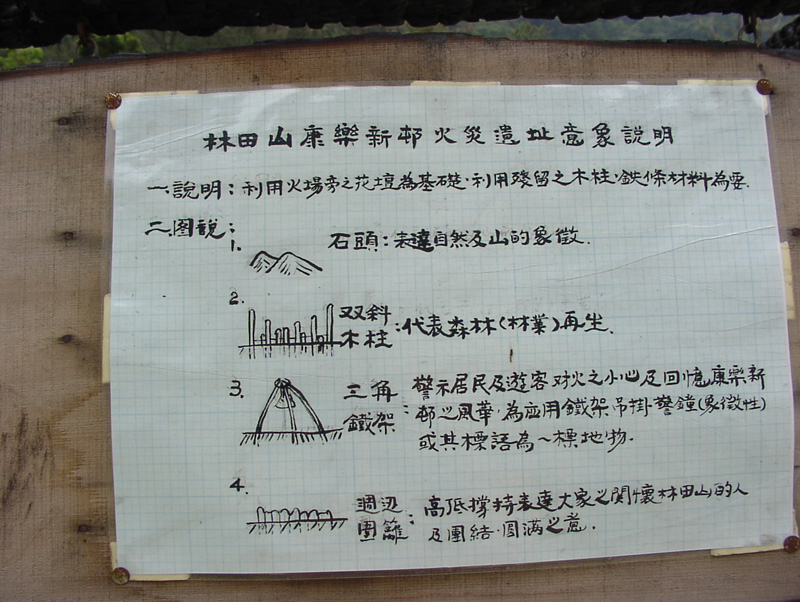 林田山康樂新邨火災遺址意象說明
一.說明：利用火場旁之花壇為基礎.利用殘留之木柱.鉄條材料為要.
二.圖說：
1.
石頭：表達自然及山的象徵.
2.
双斜木柱：代表森林(林業)再生.
3.
三角鐵架：
警示居民及遊客对火之小心及回憶康樂新
邨之風華.為应用鐵架吊掛警鐘(象徵性)
或其標語為一標地物.
4.
週辺圍籬：
高低撐持表達大家之関懷林田山的人
及團結.圓滿之意.